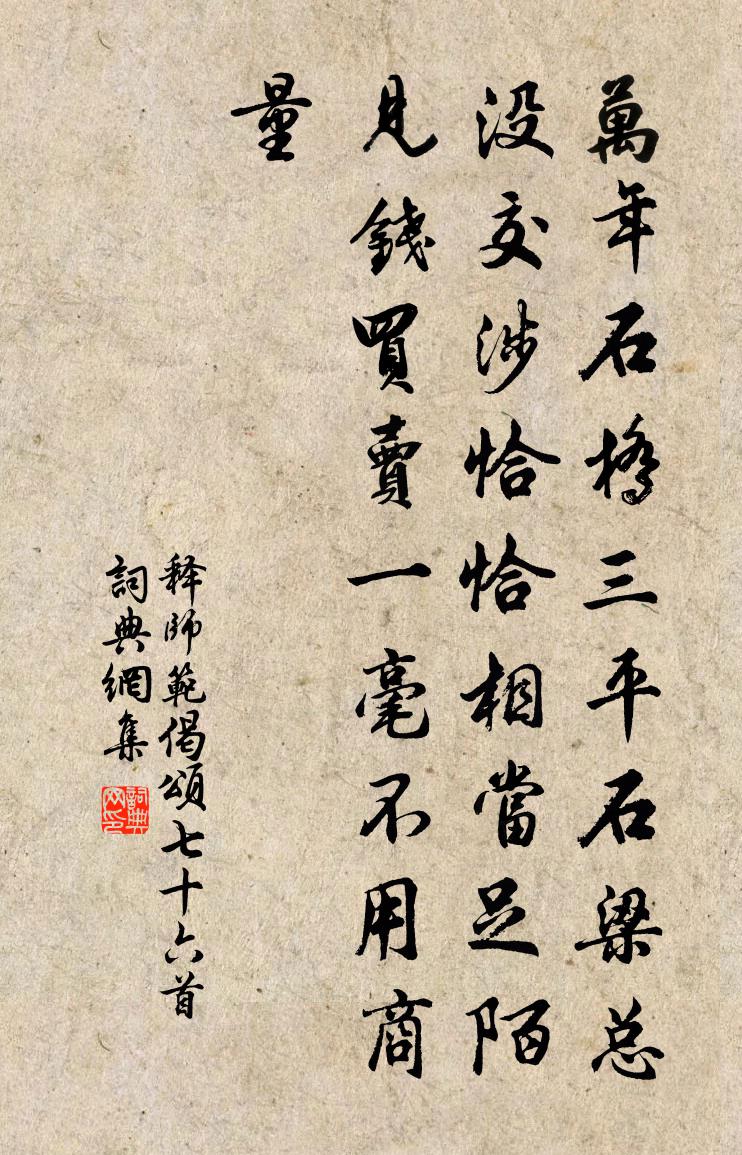 萬年石橋三平石梁总
没交涉恰恰相當足陌
見錢買賣一毫不用商
量
释師範偈頌七十六首
詞典網集
詞典网印